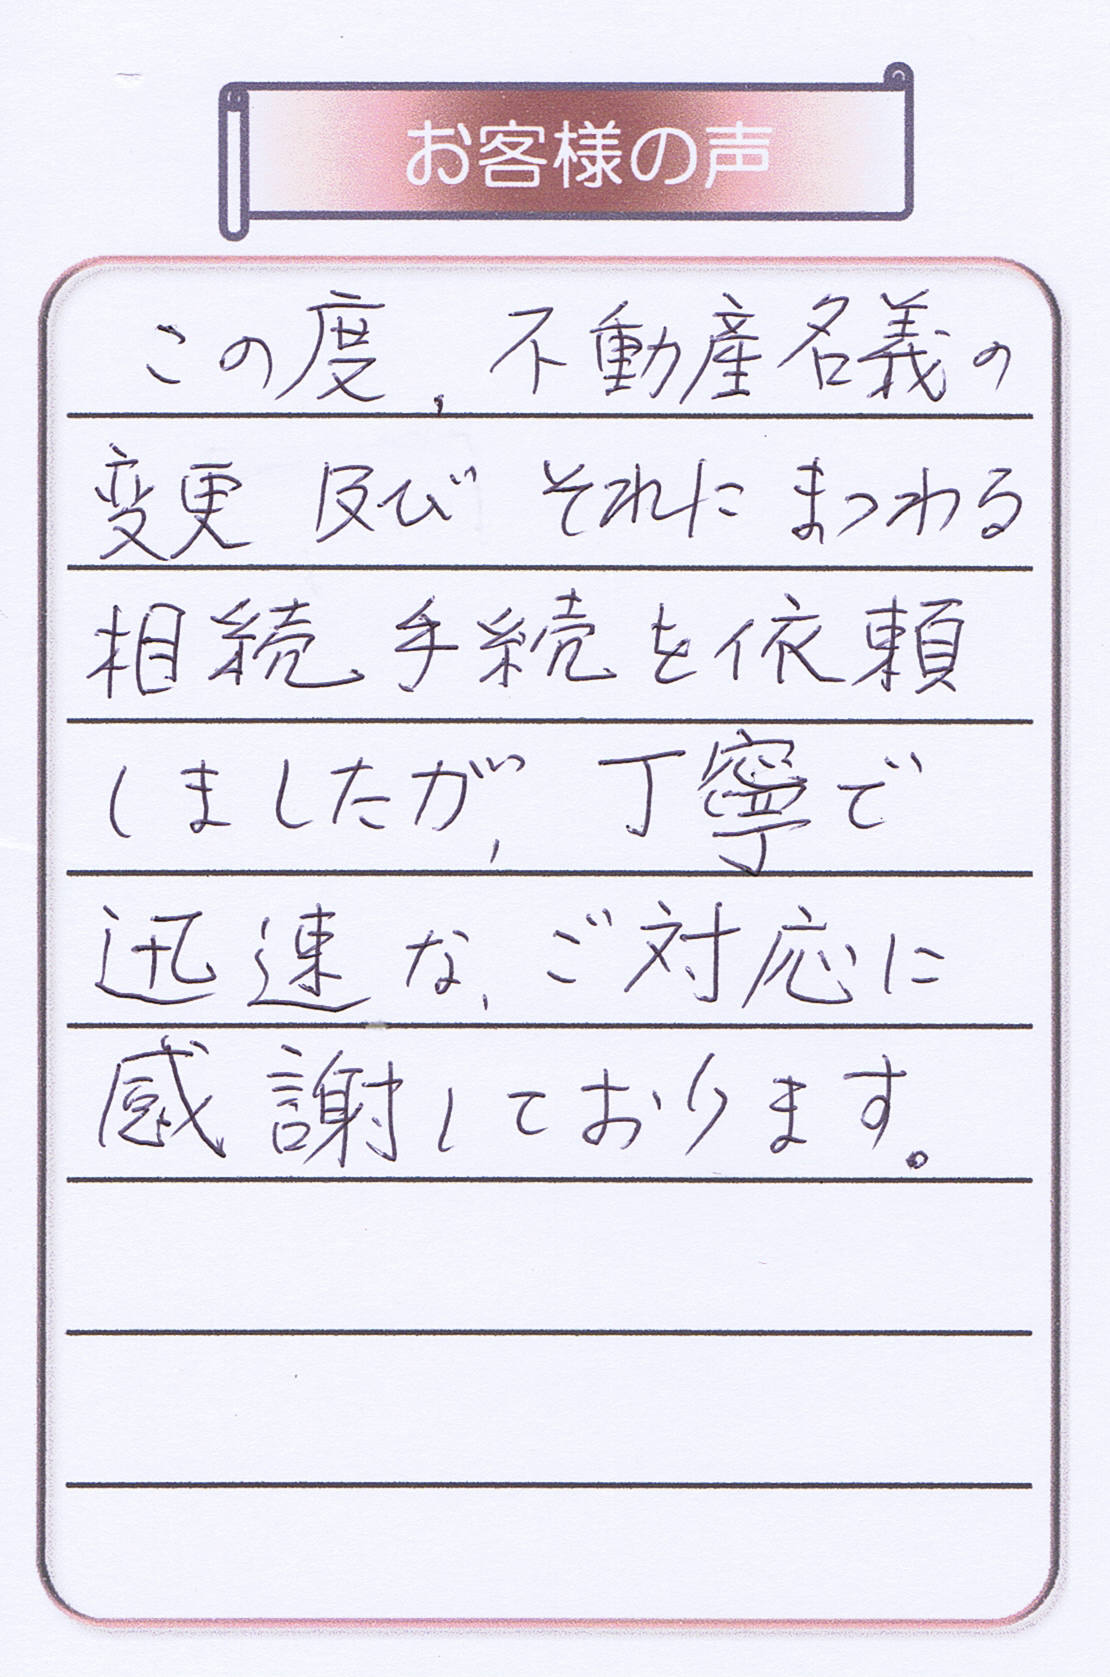 お客様の声
この度、不動産名義の
変更 及び それにまつわる
相続手続を依頼
しましたが、丁寧で
迅速な、ご対応に
感謝しております。